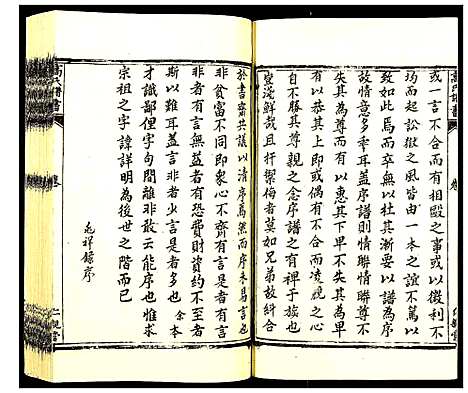 或一言不合而有相毆之事或以微利不
均而起訟獄之風皆由一本之誼不篤以
故如此焉而卒無以杜其漸要以譜為序
故情意多乖耳蓋序譜則情聯尊不
失其為尊而有以其為卑不失其為卑
有以承其上即或偶有不合而凌親之心
自不勝其尊親之念序譜之有裨于族
豈淺鮮哉且杆禦侮者莫如兄弟故糾合
於書齋共議以清序焉然而序未易言也
非貧富不同即衆心不齊有言是者有言
非者有言無益者有恐費財資約不已
斯以難耳益言非者少言是者多也余本
才識鄙俚字句閒離非敢云能序也惟求
宗祖之字諱詳明為後世之階而已
兆祥錄序
高氏譜書
卷